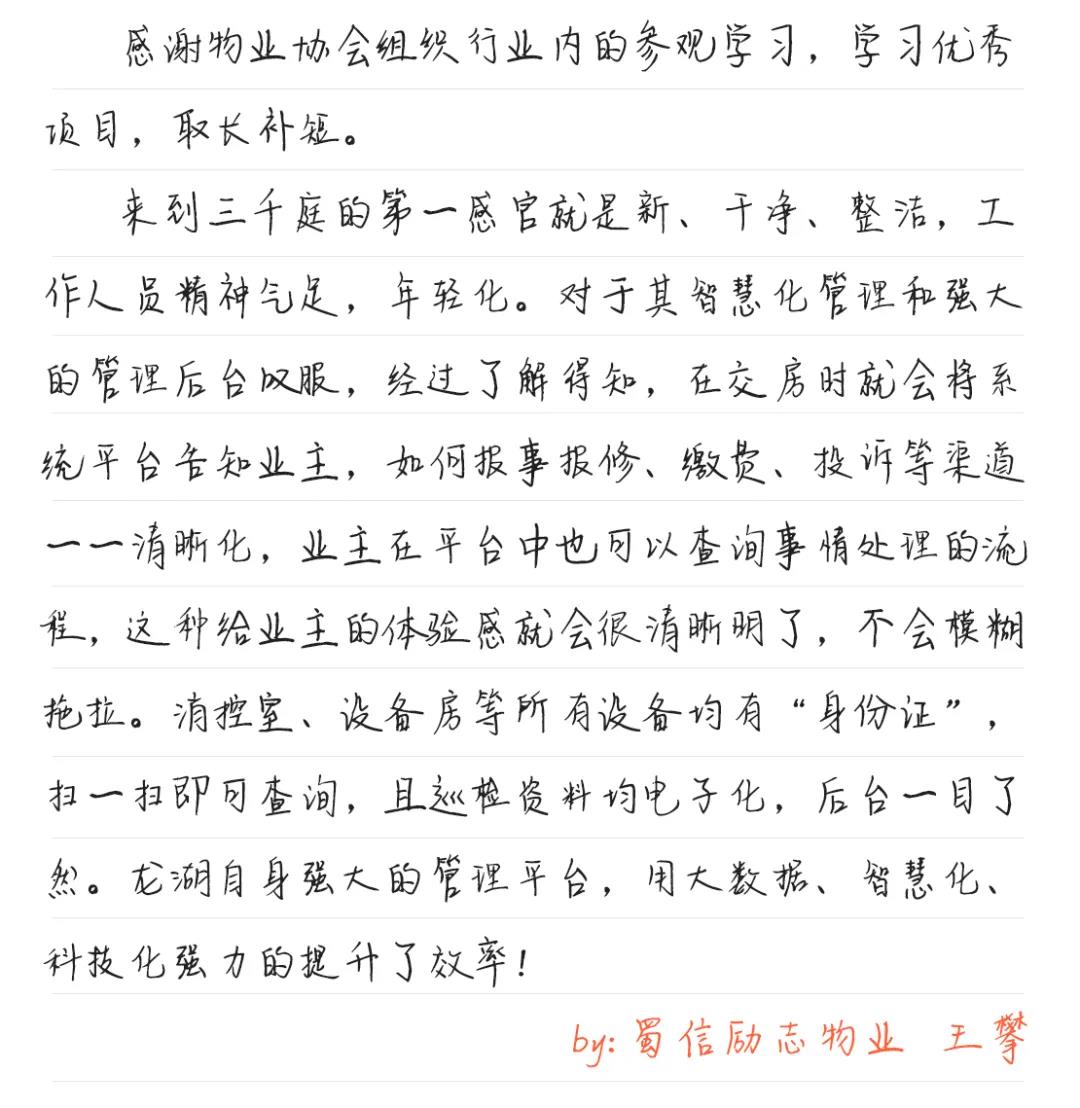 感谢物业协会组织行业内的参观学习，学习优秀
项目，取长补短。
来到三千庭的第一感官就是新、干净、整洁，工
作人员精神气足，年轻化。对于其智慧化管理和强大
的管理后台叹服，经过了解得知，在交房时就会将系
统平台告知业主，如何报事报修、缴费、投诉等渠道
一一清晰化，业主在平台中也可以查询事情处理的流
程，这种给业主的体验感就会很清晰明了，不会模糊
拖拉。消控室、设备房等所有设备均有“身份证”，
扫一扫即可查询，且巡检资料均电子化，后台一目了
然。龙湖自身强大的管理平台，用大数据、智慧化、
科技化强力的提升了效率！
by: 蜀信励志物业 王攀